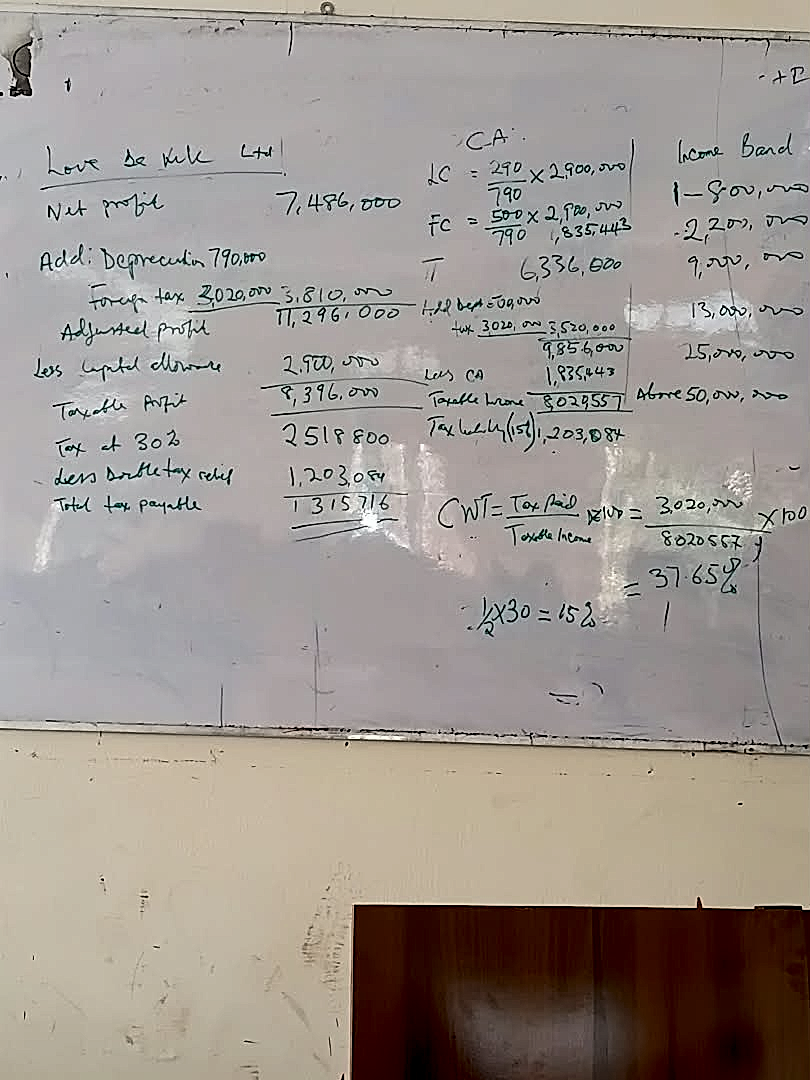 Love Da Kik Ltd
Net profit 7,486,000
Add: Depreciation 790,000
Foreign tax 3,020,000 3,810,000
Adjusted profit 11,296,000
Less Capital allowance 2,900,000
Taxable Profit 8,396,000
Tax at 30% 2518800
Less Double tax relief 1,203,084
Total tax payable 1315716
CA:
LC = 290/790 × 2,900,000
FC = 500/790 × 2,900,000
1,835,443
π 6,336,000
Add Dept 500,000
tax 3020,000 3,520,000
9,856,000
Less CA 1,835,443
Taxable Income 8020557
Tax liability (15%) 1,203,084
CWT = Tax Paid/Taxable Income × 100 = 3,020,000/8020557 × 100
= 37.65%
1/2 × 30 = 15%
Income Band
1 – 800,000
2,200,000
9,000,000
13,000,000
25,000,000
Above 50,000,000